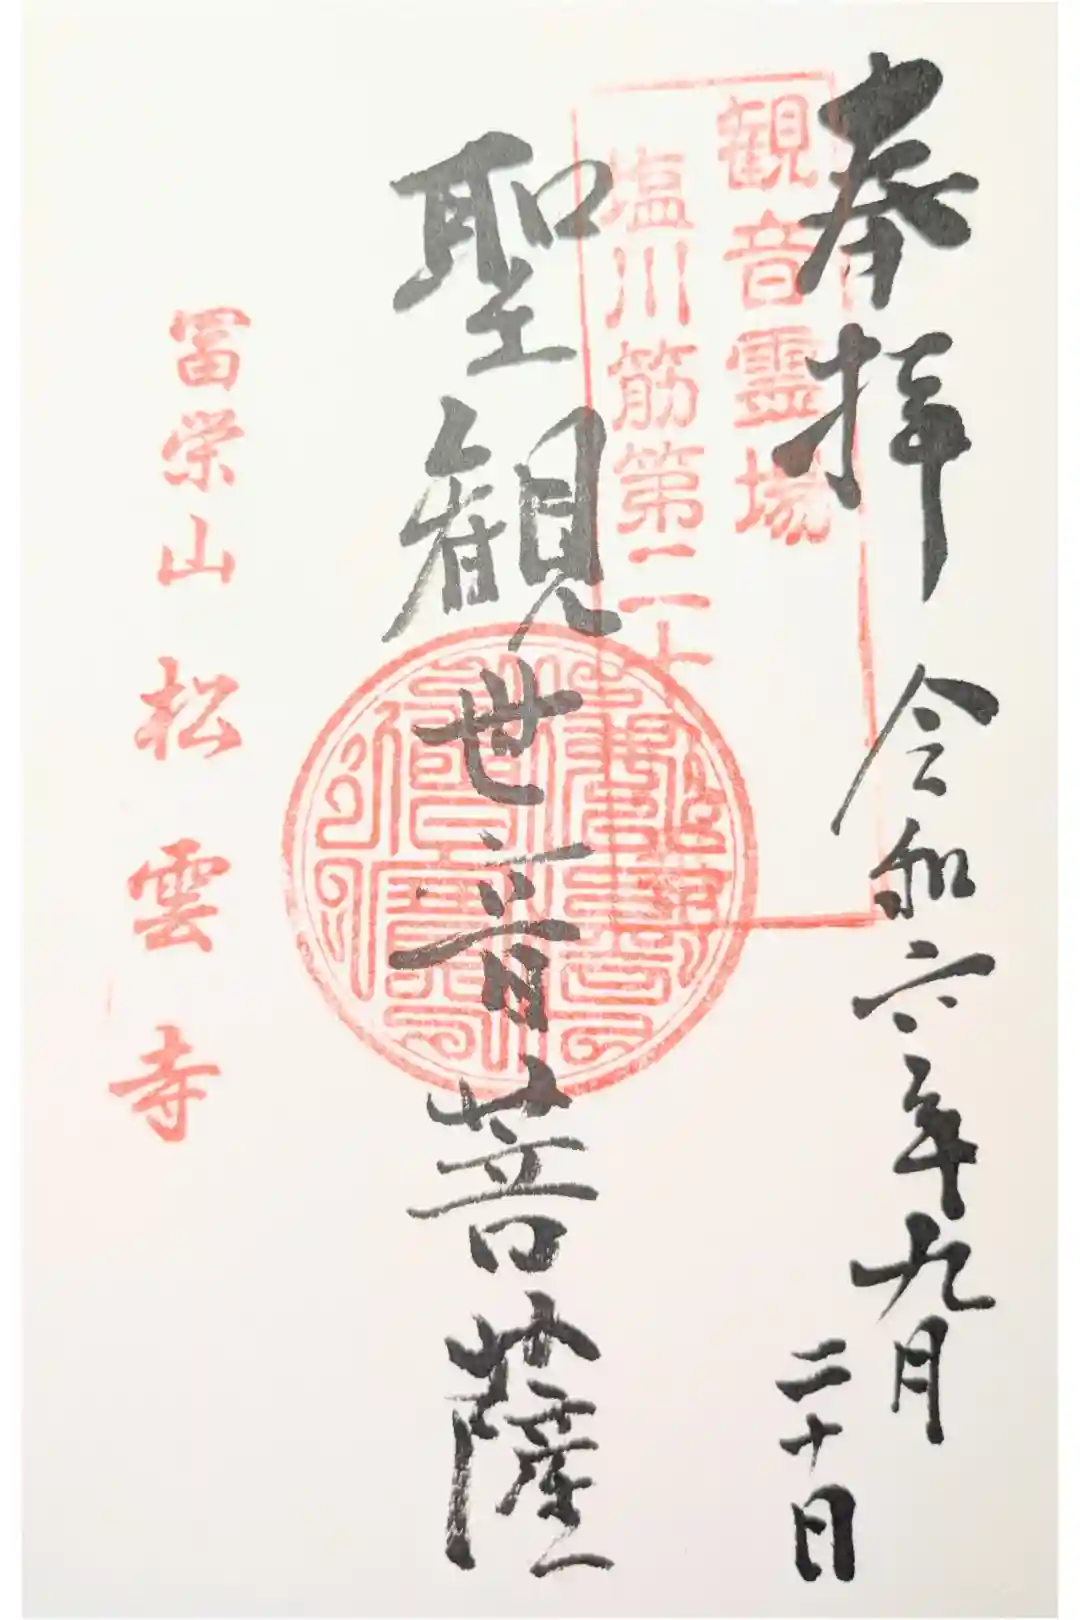 奉拝
令和六年九月
二十日
観音霊場
塩川筋第二十
聖観世音菩薩
冨栄山松雲寺